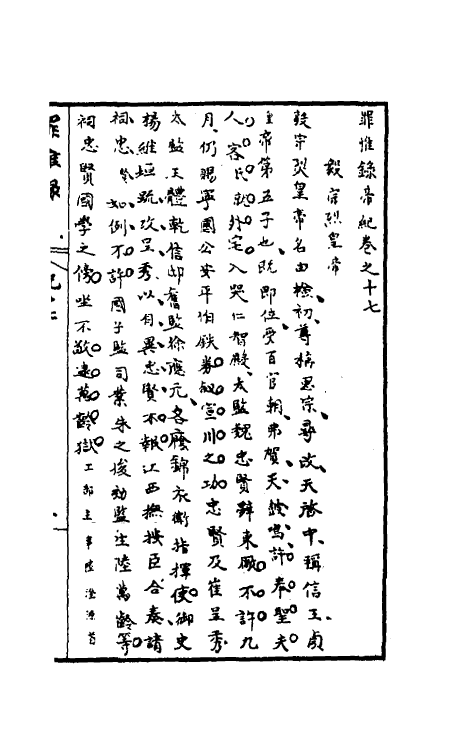 罪惟錄帝紀卷之十七
毅宗烈皇帝
毅宗烈皇帝名由檢初尊稱思宗尋改天啓中稱信王貞
皇帝第五子也既即位受百官朝弗賀天鼓鳴許奉聖夫
人客氏就外宅入哭仁智殿太監魏忠賢辭東廠不許九
月仍賜寧國公安平伯鐵券敘宣川之功忠賢及崔呈秀
太監王體乾信邸舊監徐應元各廕錦衣衛指揮使御史
楊維垣疏攻呈秀以自異忠賢不報江西撫按臣合奏請
祠忠賢如例不許國子監司業朱之俊劾監生陸萬齡等
祠忠賢國學之傍坐不敬逮萬齡獄工部主事陸澄源首
罪惟錄